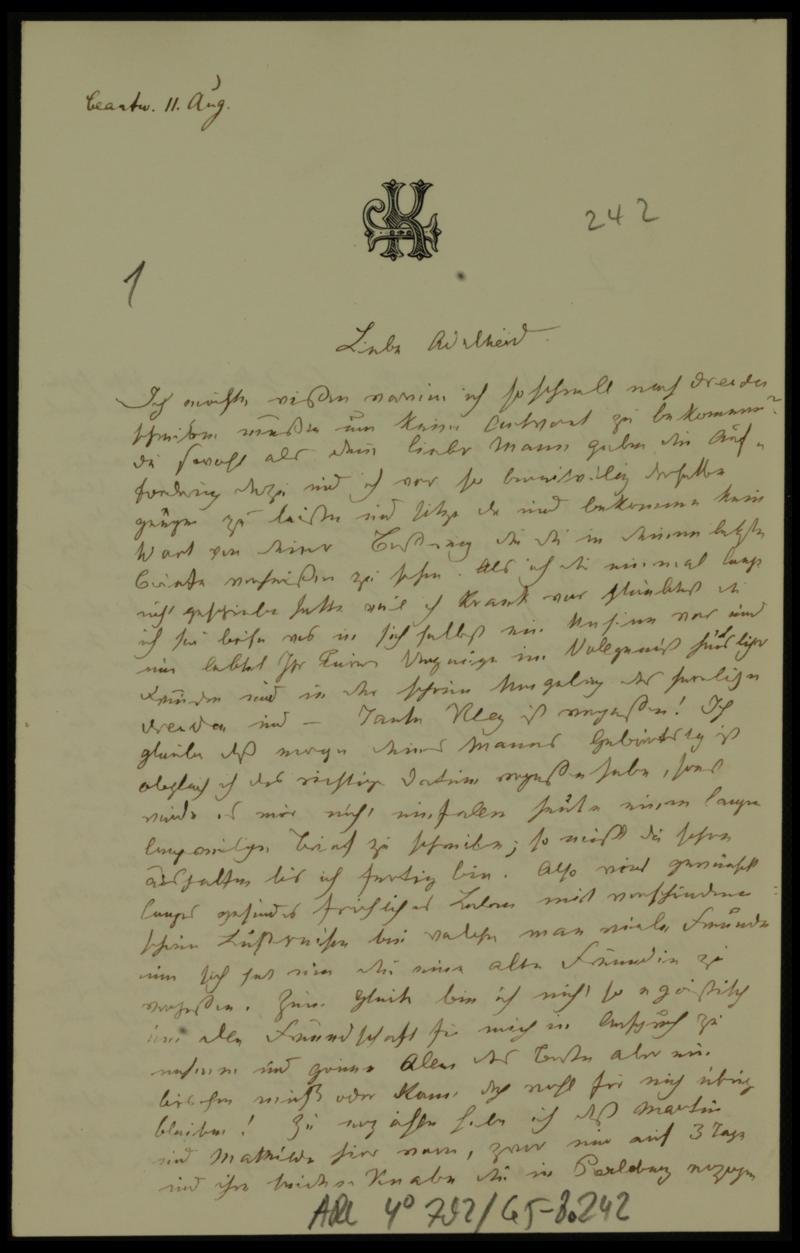 beantw. 11. Aug.
K
242
1
Liebe Adelheid
Ich möchte wißen warum ich so schnell nach Dresden
schreiben mußte um keine Antwort zu bekommen?
da sowohl als dein lieber Mann gaben die Auf-
forderung dazu und ich war so bereitwillig derselben
genüge zu leisten und sitze da und bekomme kein
Wort von deiner die du in deinem letzten
Briefe zu sehen. Als ich dir einmal lange
nicht geschrieben hatte weil ich Krank war glaubtest du
ich sei böse was in sich selbst ein Unsinn war und
nun lebtet Ihr Eurem Vergnügen im Vollgenuß
Freunden und in der schönen Umgebung des herrlichen
Dresden und — Tante Kley ist vergeßen! Ich
glaube daß morgen deines Mannes Geburtstag ist
obgleich ich das richtige Datum vergeßen habe, sonst
würde es mir nicht einfallen heute einen langen
langweiligen Brief zu schreiben; so mußt du schon
aushalten bis ich fertig bin. Also wird gewünscht
langes gesundes fröhliches Leben mit verschiedenen
schönen Lustreisen bei welchen man viele Freunde
um sich hat um die eine alte Freundin zu
vergeßen. Zum Glück bin ich nicht so egoistisch
um alle Freundschaft für mich in Anspruch zu
nehmen und gönne Allen das Beste aber ein
bischen muß oder kann doch wohl für mich übrig
bleiben! Zu erzählen habe ich daß Martin
und Mathilde hier waren, zwar nur auf 3 Tage
und ihre beiden Knaben die in erzogen
ABL 4° 792/65-B.242